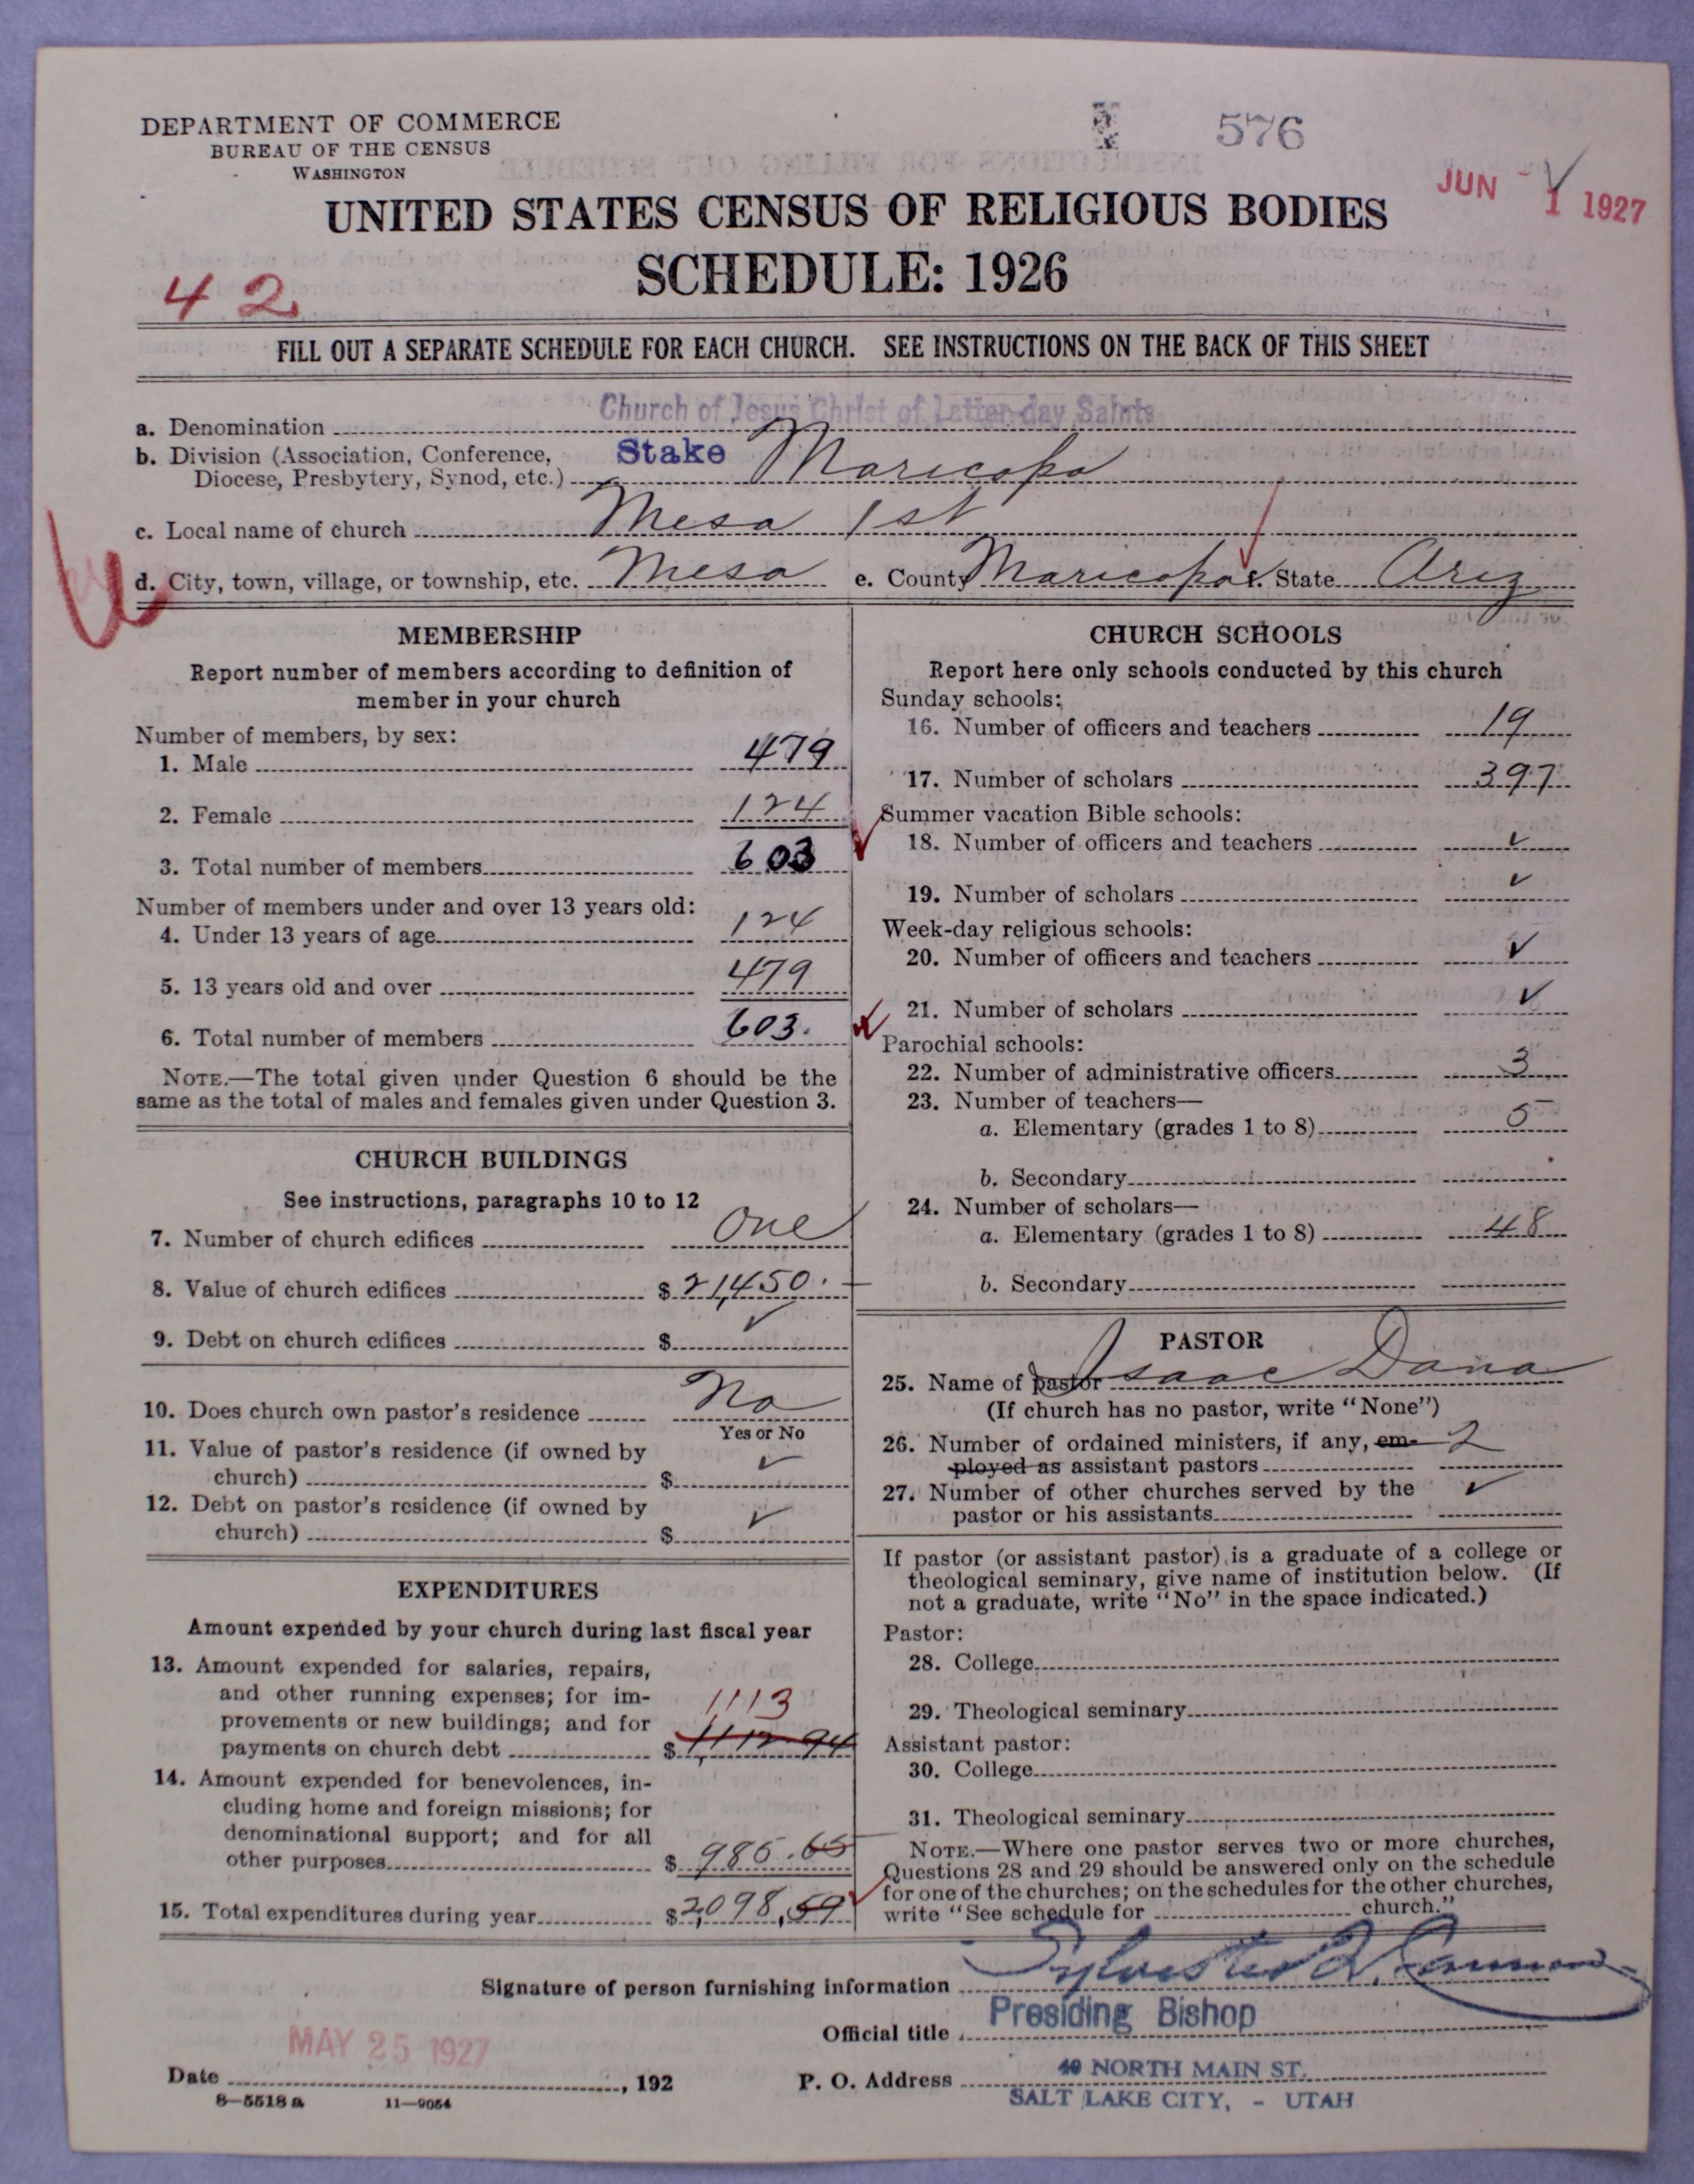 DEPARTMENT OF COMMERCE
BUREAU OF THE CENSUS
WASHINGTON
576
JUN 1 1927
UNITED STATES CENSUS OF RELIGIOUS BODIES
SCHEDULE: 1926
42
FILL OUT A SEPARATE SCHEDULE FOR EACH CHURCH. SEE INSTRUCTIONS ON THE BACK OF THIS SHEET
a. Denomination Church of Jesus Christ of Latter-day Saints
b. Division (Association, Conference, Diocese, Presbytery, Synod, etc.) Stake Maricopa
c. Local name of church Mesa 1st
d. City, town, village, or township, etc. Mesa e. County Maricopa f. State Ariz
MEMBERSHIP
Report number of members according to definition of
member in your church
Number of members, by sex:
1. Male 479
2. Female 124
3. Total number of members 603
Number of members under and over 13 years old:
4. Under 13 years of age 124
5. 13 years old and over 479
6. Total number of members 603.
NOTE.—The total given under Question 6 should be the
same as the total of males and females given under Question 3.
CHURCH BUILDINGS
See instructions, paragraphs 10 to 12
7. Number of church edifices One
8. Value of church edifices $ 21,450.
9. Debt on church edifices $ ✓
10. Does church own pastor's residence No
Yes or No
11. Value of pastor's residence (if owned by
church) $ ✓
12. Debt on pastor's residence (if owned by
church) $ ✓
EXPENDITURES
Amount expended by your church during last fiscal year
13. Amount expended for salaries, repairs,
and other running expenses; for im-
provements or new buildings; and for 1113
payments on church debt $ 1,112.94
14. Amount expended for benevolences, in-
cluding home and foreign missions; for
denominational support; and for all
other purposes $ 985.65
15. Total expenditures during year $ 2,098,59
CHURCH SCHOOLS
Report here only schools conducted by this church
Sunday schools:
16. Number of officers and teachers 19
17. Number of scholars 397
Summer vacation Bible schools:
18. Number of officers and teachers ✓
19. Number of scholars ✓
Week-day religious schools:
20. Number of officers and teachers ✓
21. Number of scholars ✓
Parochial schools:
22. Number of administrative officers 3
23. Number of teachers—
a. Elementary (grades 1 to 8) 5
b. Secondary
24. Number of scholars—
a. Elementary (grades 1 to 8) 48
b. Secondary
PASTOR
25. Name of pastor Isaac Dana
(If church has no pastor, write "None")
26. Number of ordained ministers, if any, em- 2
ployed as assistant pastors
27. Number of other churches served by the ✓
pastor or his assistants
If pastor (or assistant pastor) is a graduate of a college or
theological seminary, give name of institution below. (If
not a graduate, write "No" in the space indicated.)
Pastor:
28. College
29. Theological seminary
Assistant pastor:
30. College
31. Theological seminary
NOTE.—Where one pastor serves two or more churches,
Questions 28 and 29 should be answered only on the schedule
for one of the churches; on the schedules for the other churches,
write "See schedule for church."
Signature of person furnishing information Sylvester Q. Cannon
Official title Presiding Bishop
MAY 25 1927
Date , 192 P. O. Address 40 NORTH MAIN ST.
SALT LAKE CITY, - UTAH
8—5518a 11—9054